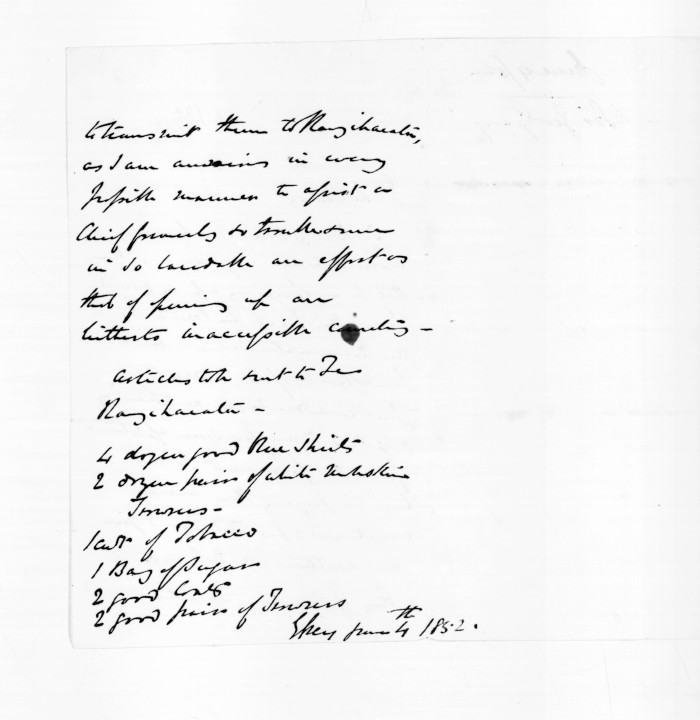 to transmit them to Rangihaeata,
as I am anxious in every
possible manner to assist a
Chief formerly so troublesome
in so laudable an effort as
that of opening up an
hitherto inaccessible country –
Articles to be sent to Te
Rangihaeata –
4 dozen good Blue Shirts
2 dozen pairs of white Moleskin
Trowsers –
1 cwt of Tobacco
1 Bag of Sugar
2 good Coats
2 good pairs of Trowsers
4th 1852.